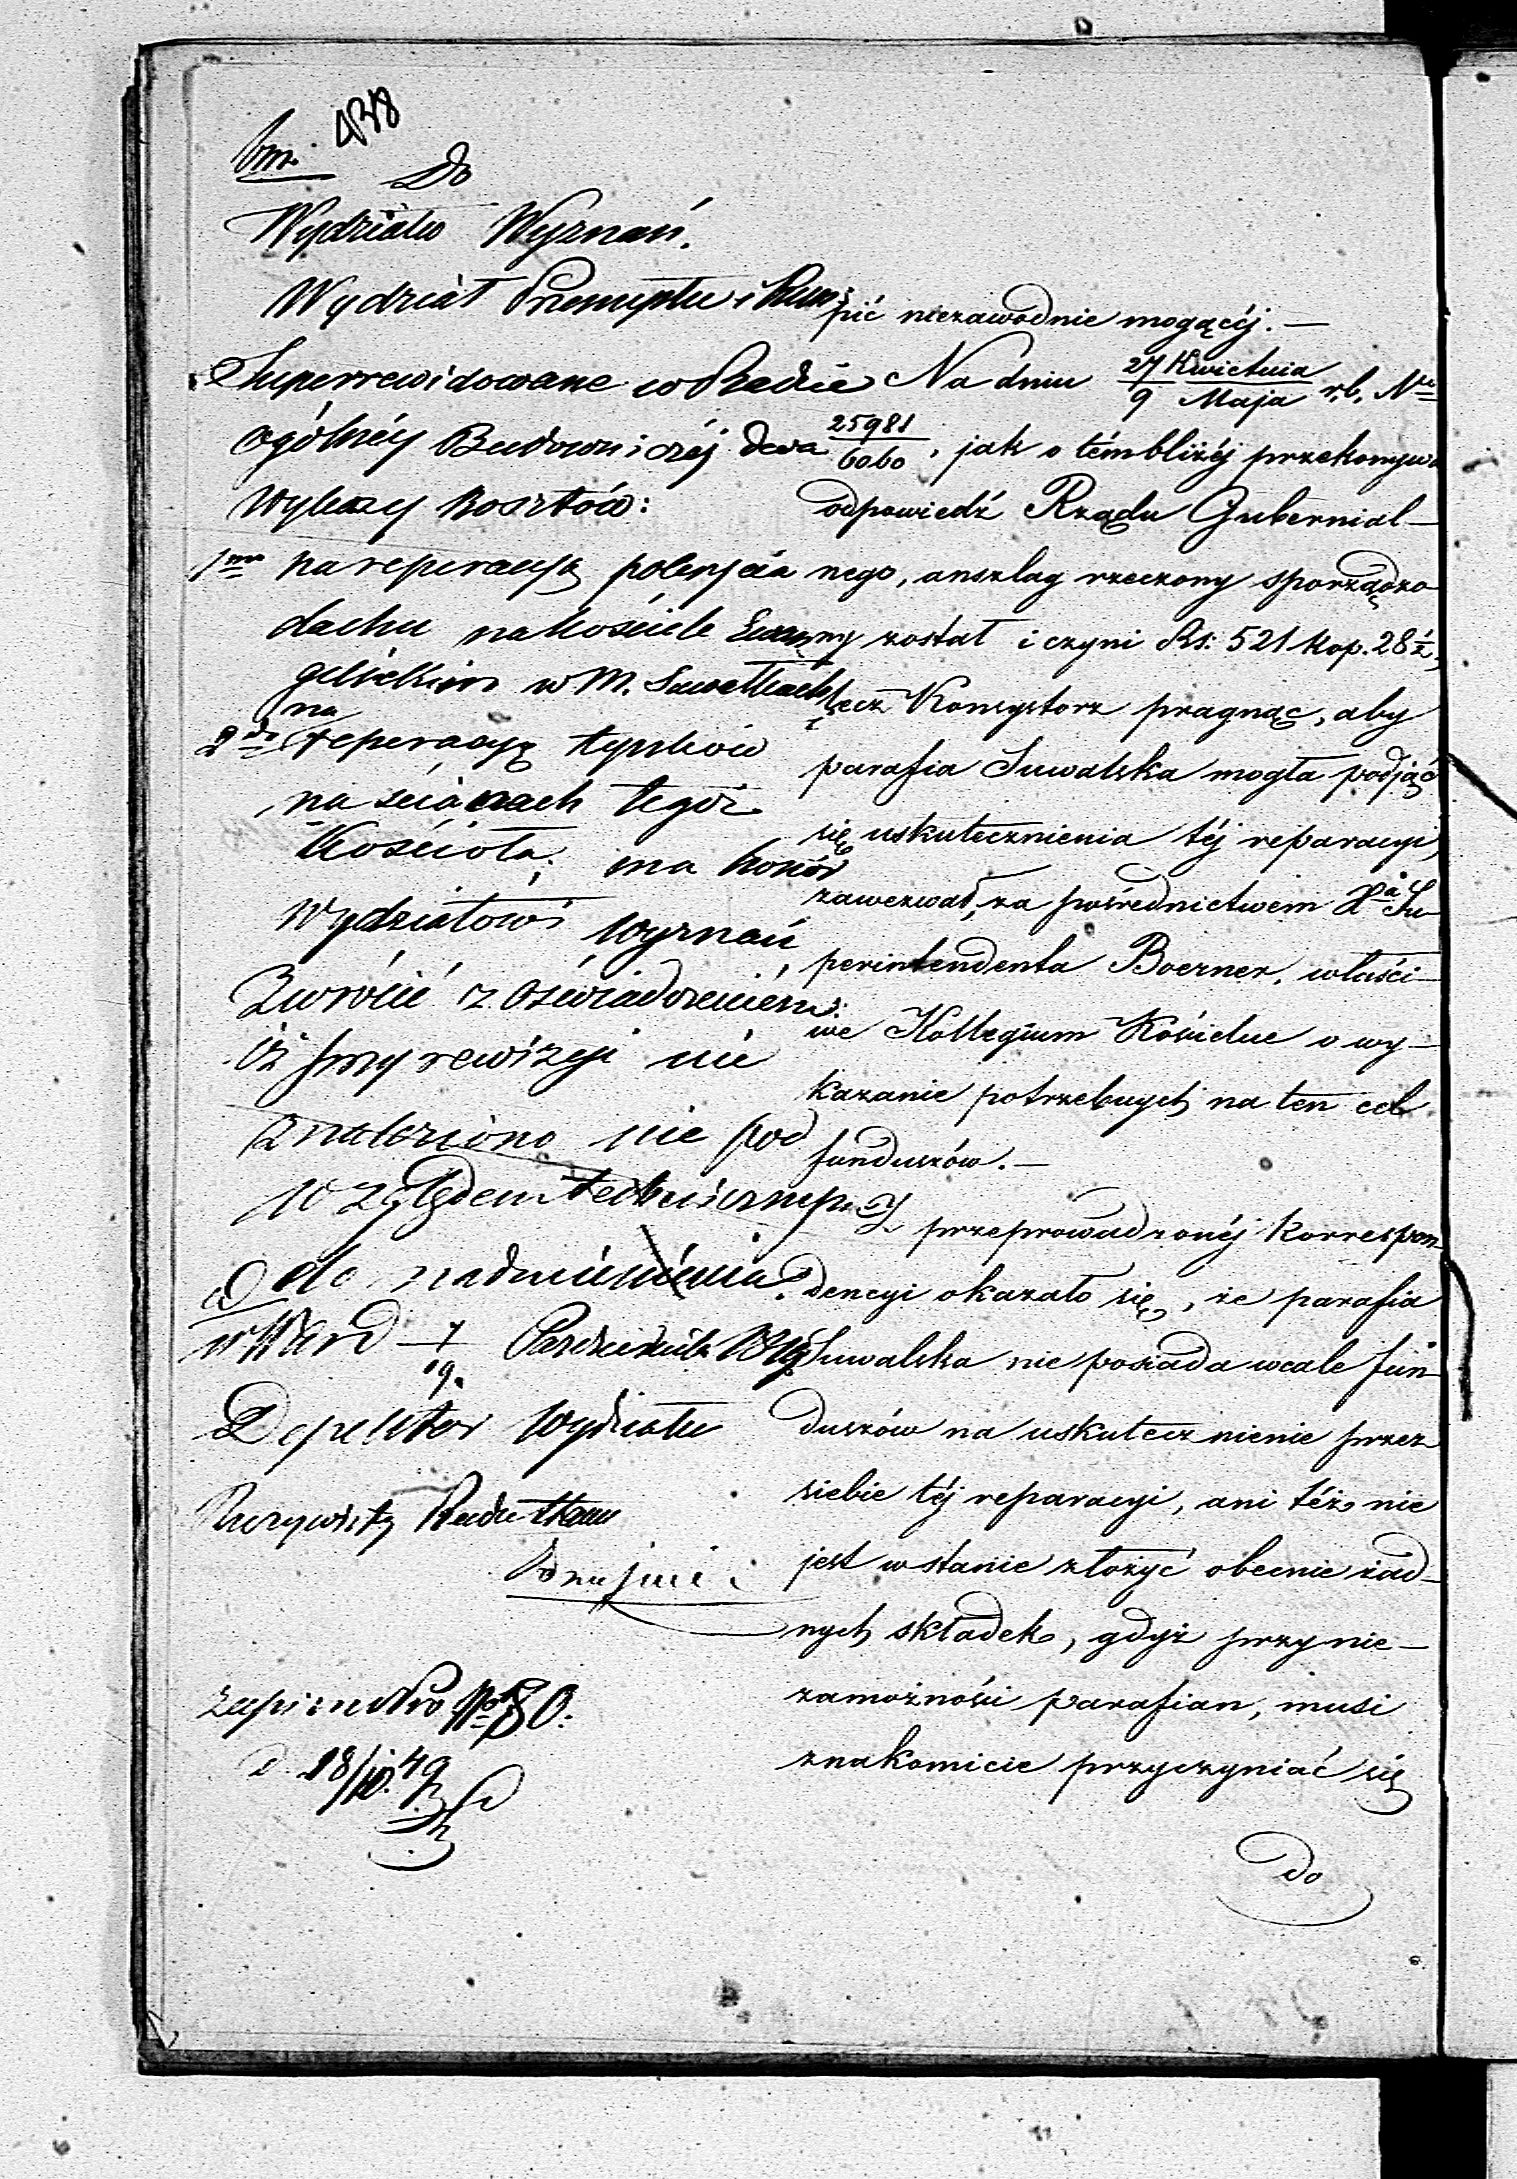 438
bm.
Do
Wydziału Wyznań.
Wydział Przemysłu i Kun:
Superrewidowane w Radzie
ogólnéy Budowniczéj dwa
Wykazy Kosztów:
1mo na reperacyą pokrycia
dachu na kościele Ewan
gelickim w M. Suwałkach
2do na reperacyą tynków
na ścianach tegoż
Kościoła; ma honor
Wydziałowi Wyznań
Zwrócić z oświadczeniem:
iż przy rewizyi nie
znaleziono nic pod
względem technicznym
do nadmienienia.
w Ward 7/19 Października 1849
Deputor Wydziału
Rzeczywisty Radca Stanu
zapisano Nro 80.
d. 18/10. 49
pić niezawodnie mogącéj. —
Na dniu 27 Kwietnia/9 Maja r. b. No
25981/6060, jak o tém bliżéj przekonywa
odpowiedź Rządu Gubernial-
nego, anszlag rzeczony sporządzo
ny został i czyni Rs: 521 kop. 28½,
lecz Konsystorz pragnąc, aby
parafia Suwalska mogła podjąć
się uskutecznienia téj reparacyi,
zawezwał, za pośrednictwem Xa Su
perintendenta Boerner, właści-
we Kollegium Kościelne o wy-
kazanie potrzebnych na ten cel
funduszów. —
Z przeprowadzonéj korrespon-
dencyi okazało się, że parafia
Suwalska nie posiada wcale fun
duszów na uskutecznienie przez
siebie téj reparacyi, ani téż nie
jest w stanie złożyć obecnie żad-
nych składek, gdyż przy nie-
zamożności parafian, musi
znakomicie przyczyniać się
do